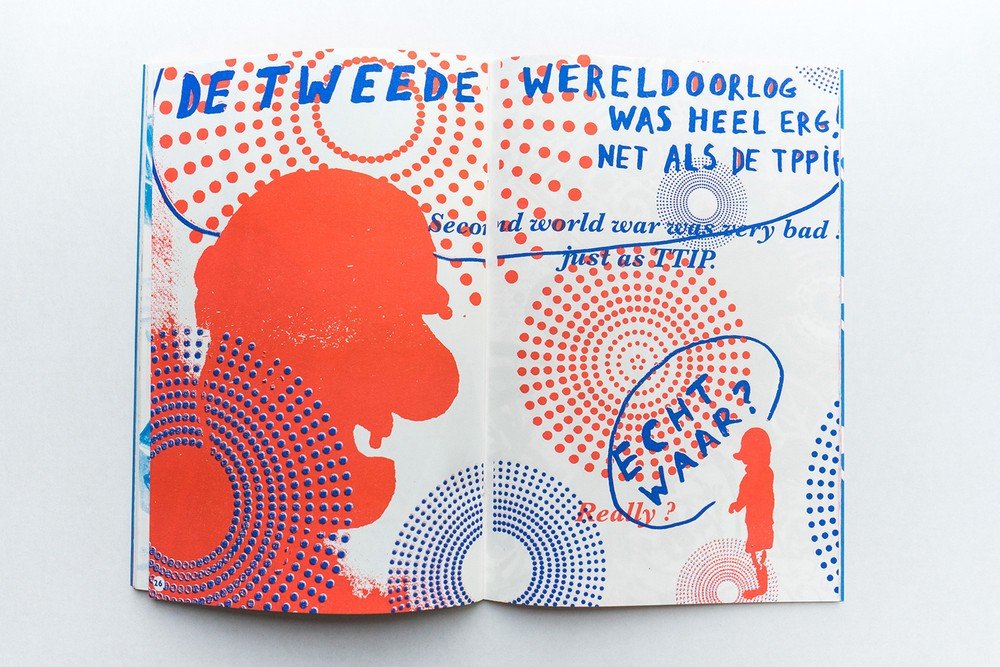 DE TWEEDE WERELDOORLOG
WAS HEEL ERG!
NET ALS DE
Second world war was very bad .
just as TTIP.
ECHT
WAAR?
Really ?
26